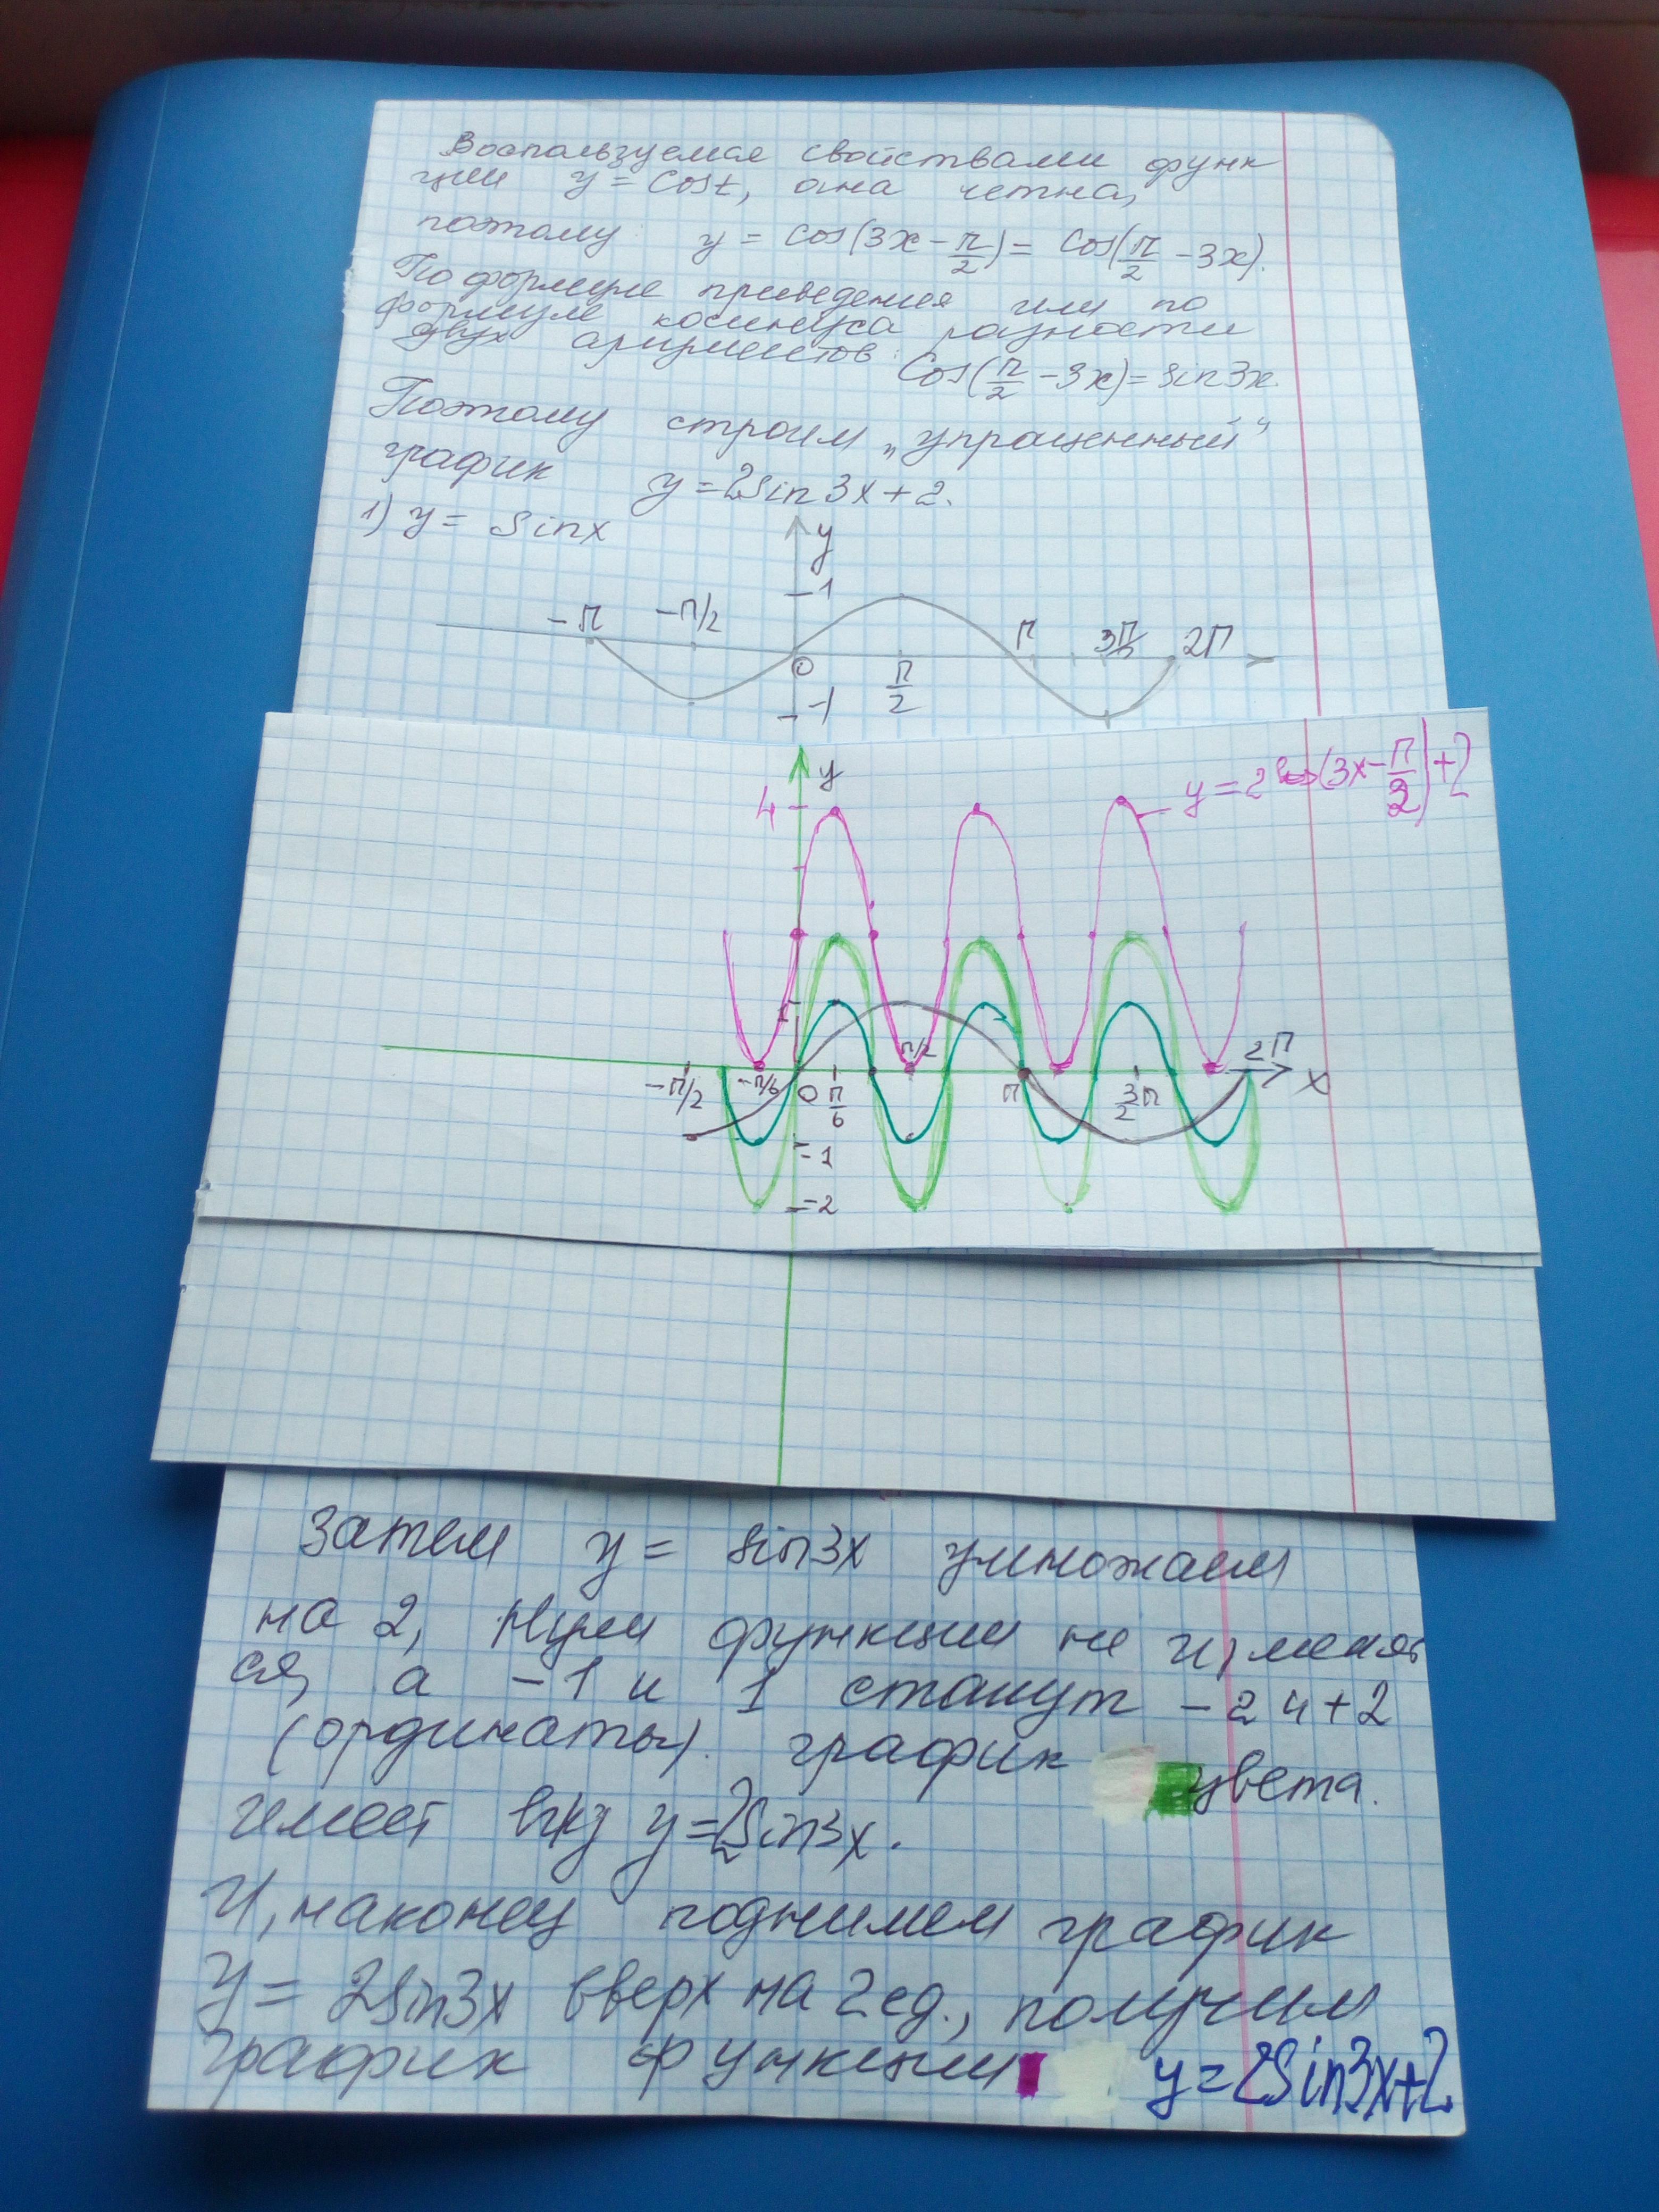 Воспользуемся свойствами функ
ции y = cost, она четна,
поэтому y = cos(3x - π/2) = cos(π/2 - 3x).
По формуле приведения или по
формуле косинуса разности
двух аргументов: cos(π/2 - 3x) = sin3x.
Поэтому строим „упрощенный“
график y = 2sin3x + 2.
1) y = sinx
y
1
-π -π/2 0 π/2 π 2π
-1
y
4
y = 2cos(3x - π/2) + 2
1
-π/2 -π/6 0 π/6 π/2 π 3/2 π 2π x
-1
-2
Затем y = sin3x умножаем
на 2, Нули функции не изменят
ся, а -1 и 1 станут -2 и +2
(ординаты). график цвета.
имеет вид y = 2sin3x.
И, наконец поднимем график
y = 2sin3x вверх на 2 ед., получим
график функции y = 2sin3x+2